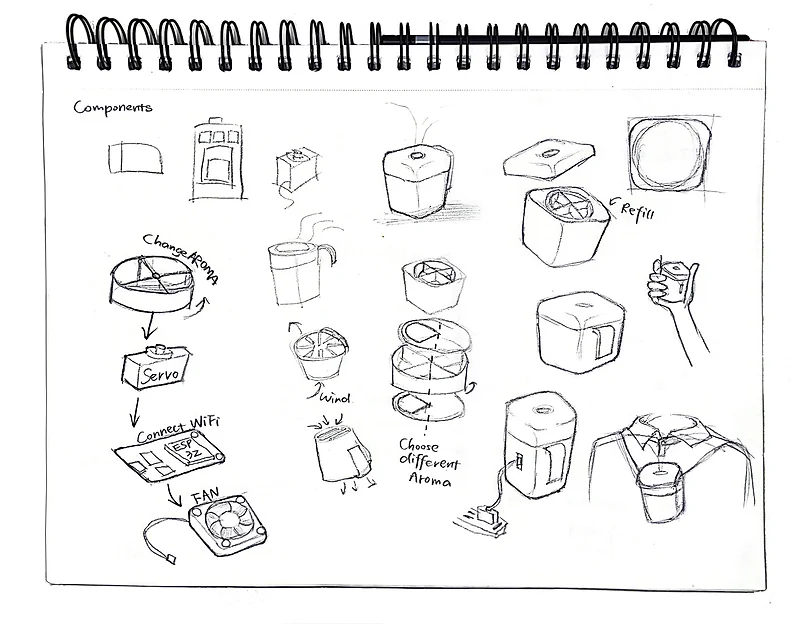 Components
Refill
Change AROMA
Servo
Connect WiFi
ESP
32
FAN
Wind
Choose
different
Aroma